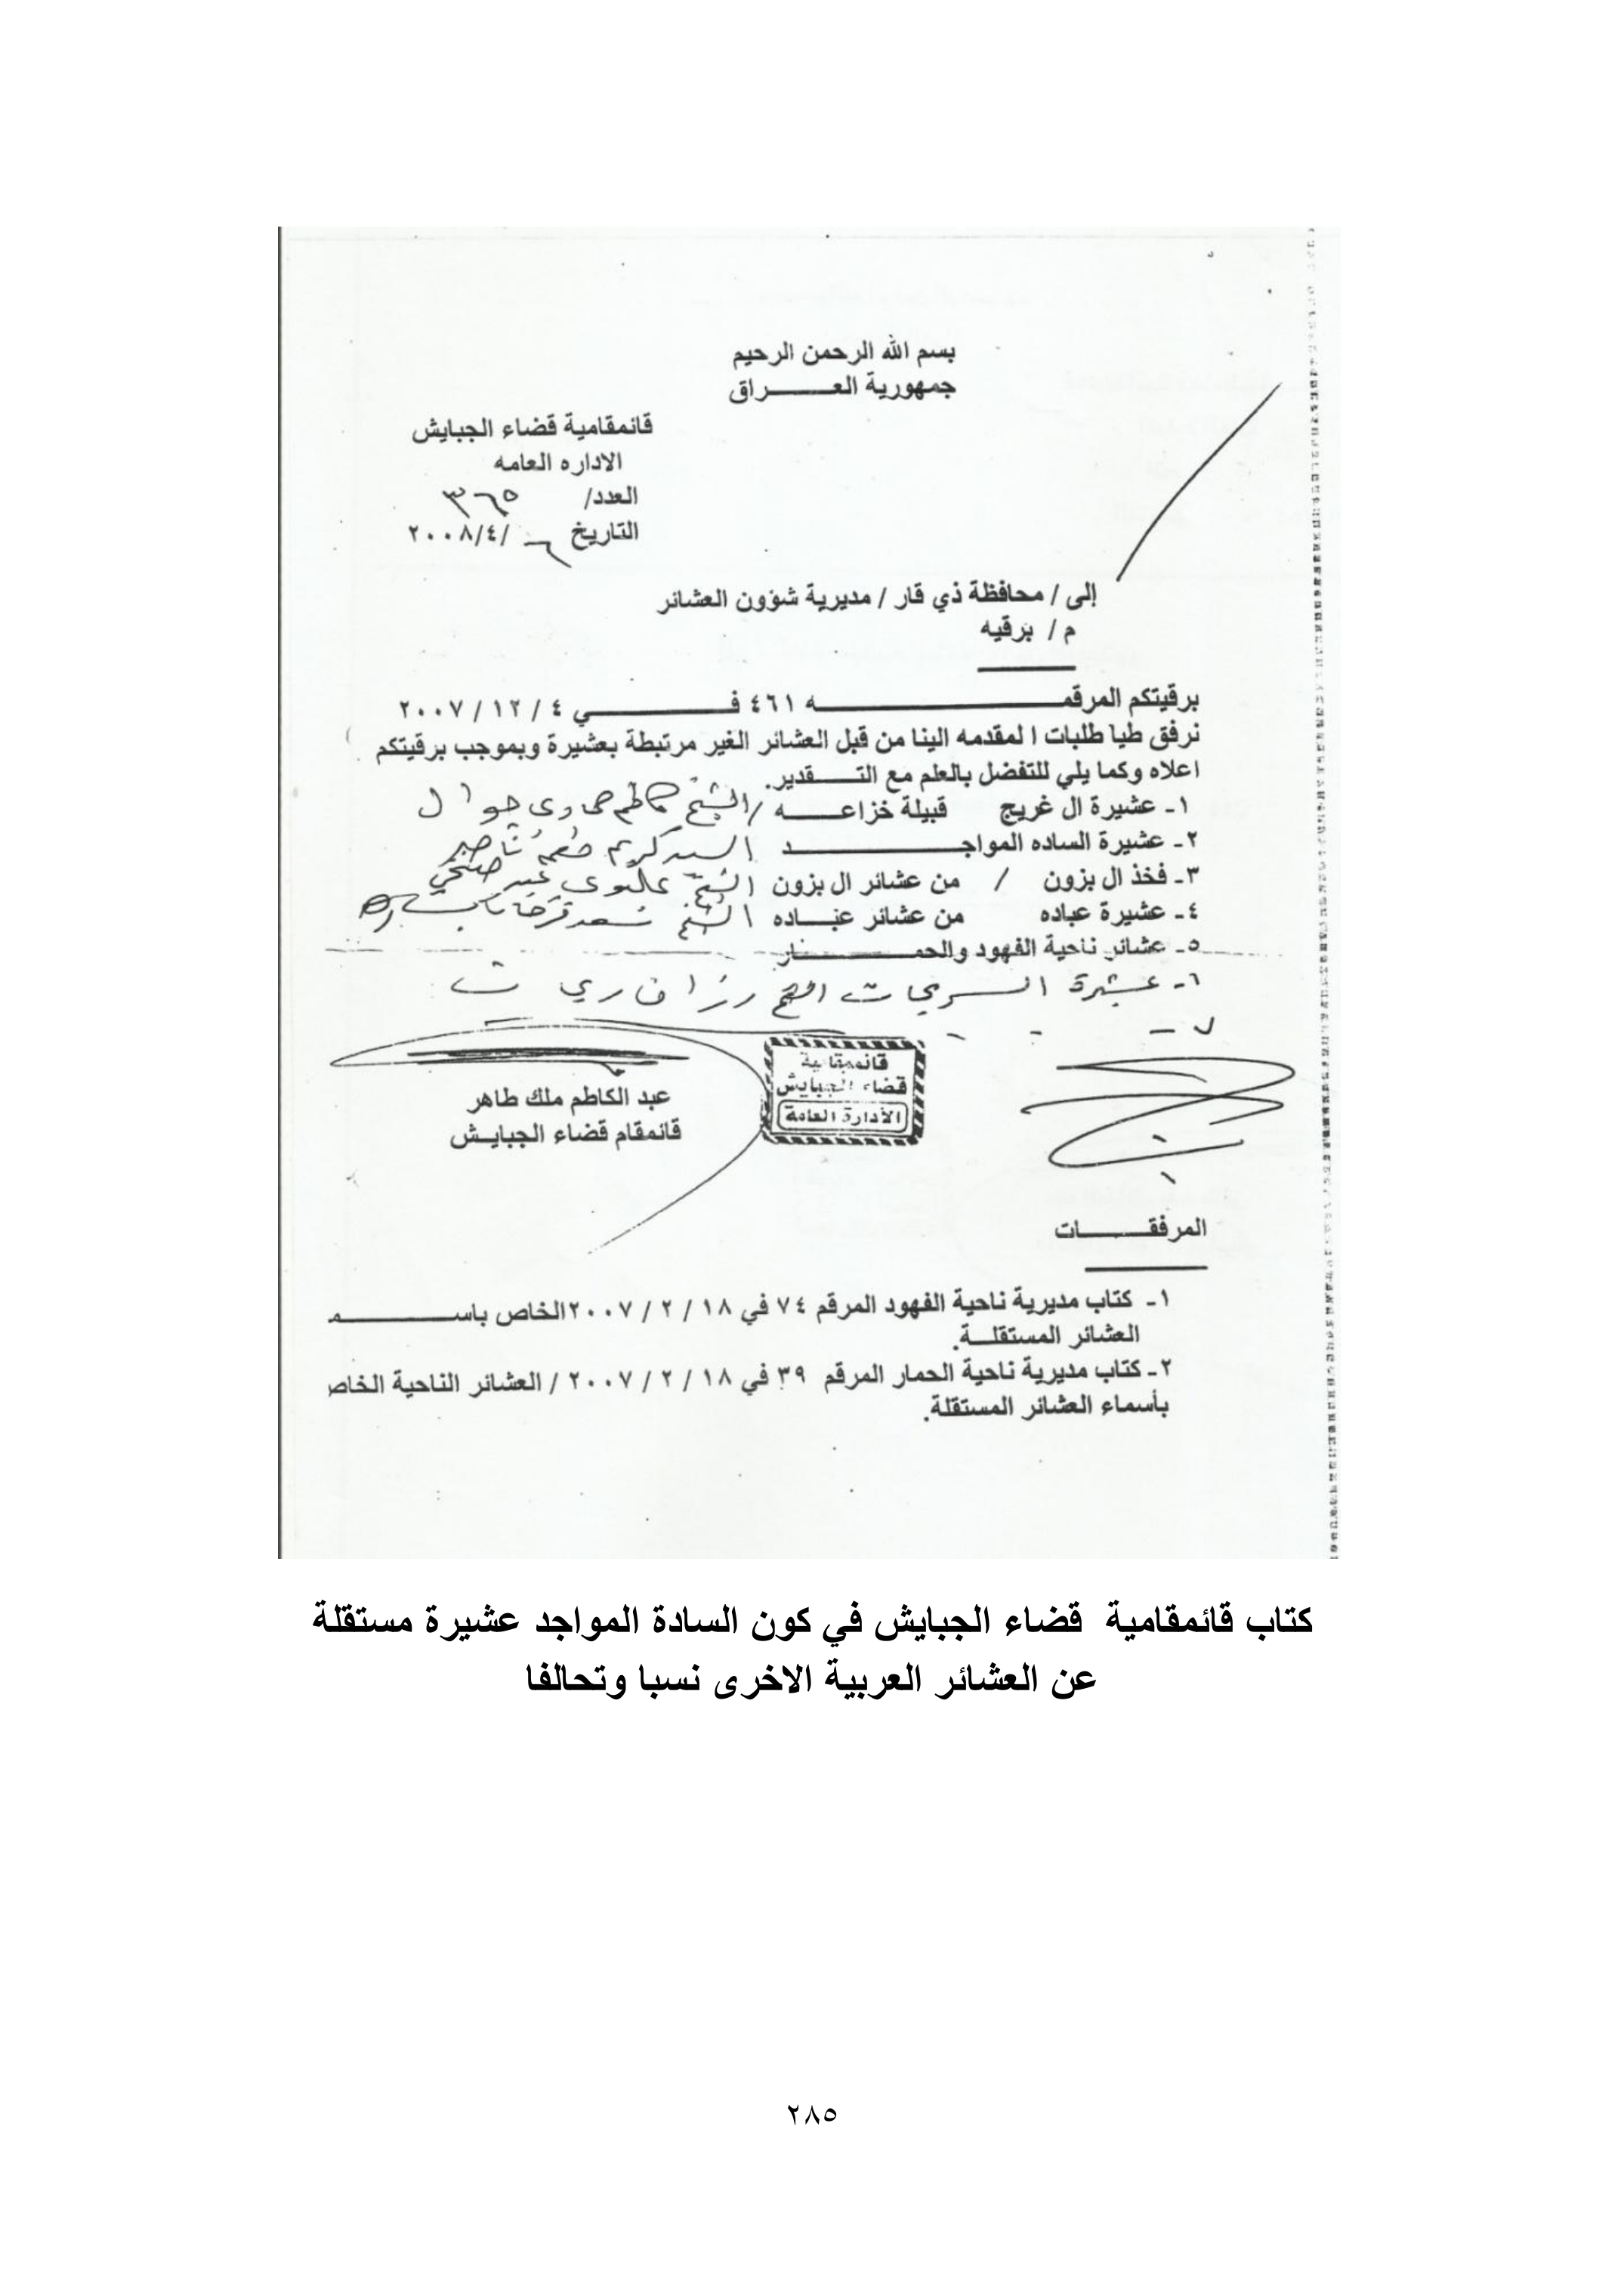 بسم الله الرحمن الرحيم
جمهورية العـــــــراق
قائمقامية قضاء الجبايش
الاداره العامه
العدد/ ٣٦٥
التاريخ ٦ /٢٠٠٨/٤
إلى / محافظة ذي قار / مديرية شؤون العشائر
م / برقيه
برقيتكم المرقمـــــــه ٤٦١ فـــــــي ٤ / ١٢ / ٢٠٠٧
نرفق طيا طلبات ا لمقدمه الينا من قبل العشائر الغير مرتبطة بعشيرة وبموجب برقيتكم
اعلاه وكما يلي للتفضل بالعلم مع التـــــقدير.
١- عشيرة ال غريج قبيلة خزاعــــــه / الشيخ كاظم حمادي
٢- عشيرة الساده المواجـــــــد السيد كريم طعمه ناصر
٣- فخذ ال بزون / من عشائر ال بزون الشيخ
٤- عشيرة عباده من عشائر عبـــاده الشيخ
٥- عشائر ناحية الفهود والحمـــــــار
٦- عشيرة
٧ -
قائمقامية
قضاء الجبايش
الأدارة العامة
عبد الكاظم ملك طاهر
قائمقام قضاء الجبايــش
المرفقـــــــات
١- كتاب مديرية ناحية الفهود المرقم ٧٤ في ١٨ / ٢ / ٢٠٠٧الخاص باســـــــمـ
العشائر المستقلـــة.
٢- كتاب مديرية ناحية الحمار المرقم ٣٩ في ١٨ / ٢ / ٢٠٠٧ / العشائر الناحية الخاص
بأسماء العشائر المستقلة.
كتاب قائمقامية قضاء الجبايش في كون السادة المواجد عشيرة مستقلة
عن العشائر العربية الاخرى نسبا وتحالفا
٢٨٥